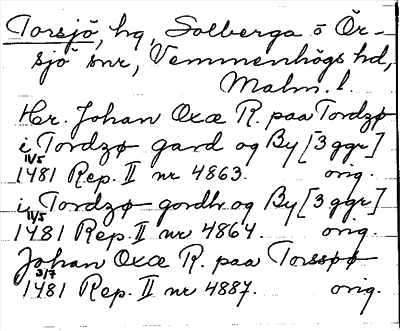 Torsjö, hg, Solberga o Ör-
sjö snr, Vemmenhögs hd,
Malm. l.
Hr. Johan Oxæ R. paa Tordzø
i Tordzø gard og By [3 ggr]
11/5 1481 Rep. II nr 4863. orig.
i Tordzø gordh og By [3 ggr]
11/5 1481 Rep. II nr 4864. orig.
Johan Oxæ R. paa Torssøø
3/7 1481 Rep. II nr 4887. orig.